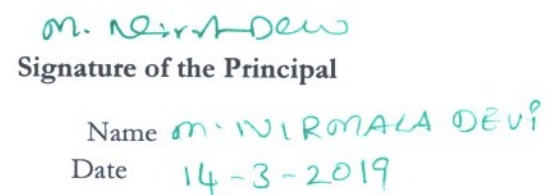 M. Nirmala Devi
Signature of the Principal
Name M. NIRMALA DEVi
Date 14-3-2019